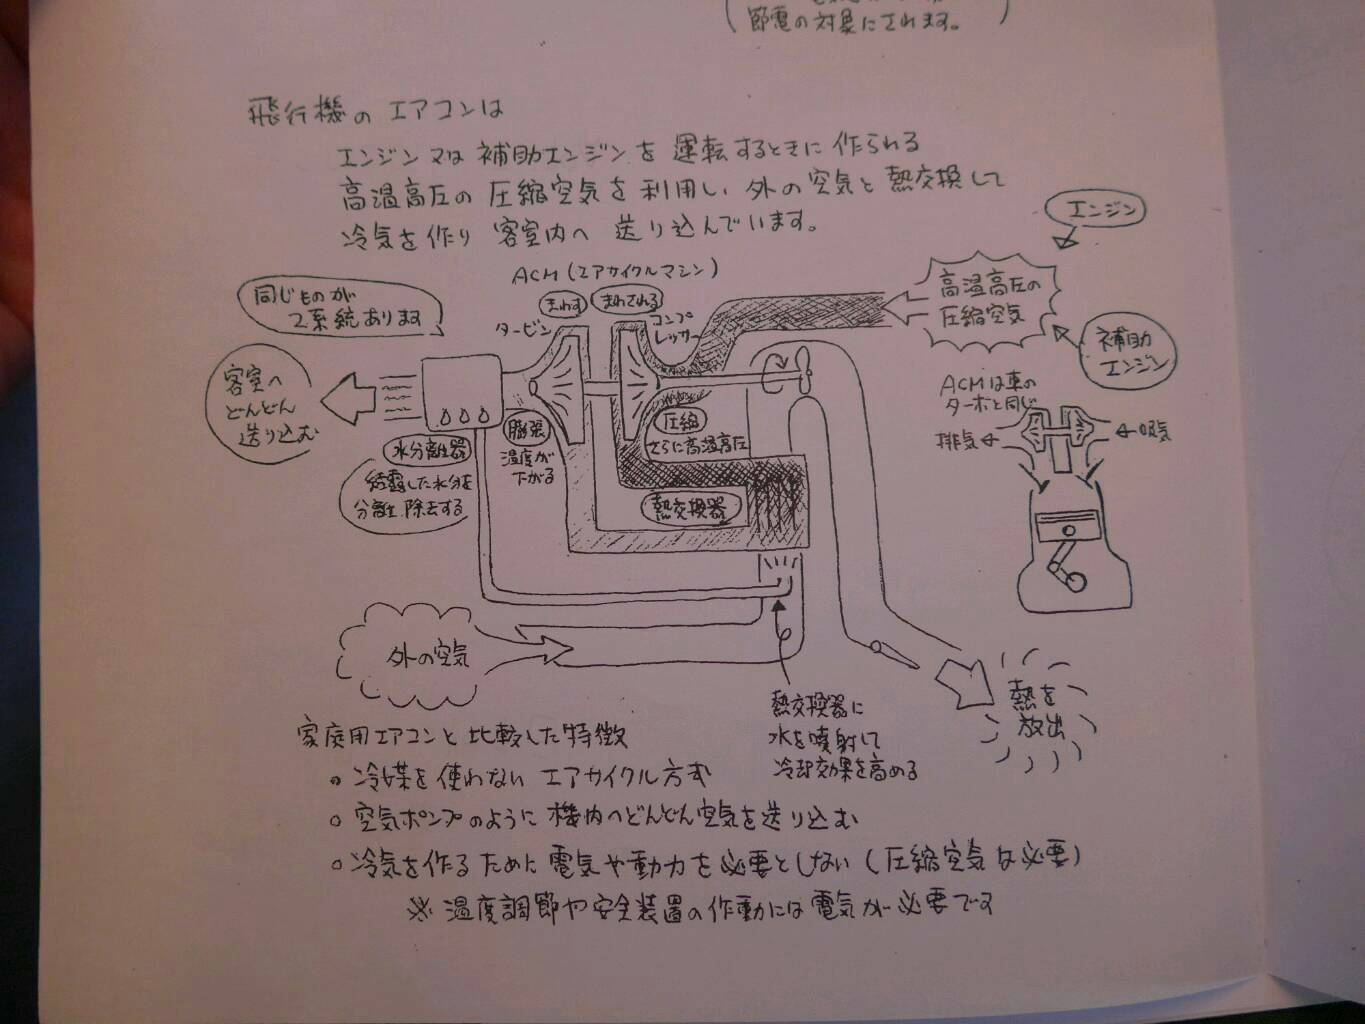 節電の対象にされます。
飛行機の エアコンは
エンジン又は 補助エンジンを 運転するときに 作られる
高温高圧の 圧縮空気を 利用し、外の空気と 熱交換して
冷気を作り 客室内へ 送り込んでいます。
エンジン
ACM(エアサイクルマシン)
同じものが
2系統あります
まわす
まわされる
タービン
コンプ
レッサー
高温高圧の
圧縮空気
補助
エンジン
客室へ
どんどん
送り込む
ACMは車の
ターボと同じ
排気
吸気
水分離器
結露した水分を
分離 除去する
膨張
温度が
下がる
圧縮
さらに高温高圧
熱交換器
外の空気
熱交換器に
水を噴射して
冷却効果を高める
熱を
放出
家庭用エアコンと 比較した特徴
○ 冷媒を使わない エアサイクル方式
○ 空気ポンプのように 機内へどんどん空気を送り込む
○ 冷気を作るために 電気や動力を必要としない(圧縮空気は必要)
※ 温度調節や安全装置の作動には電気が必要です